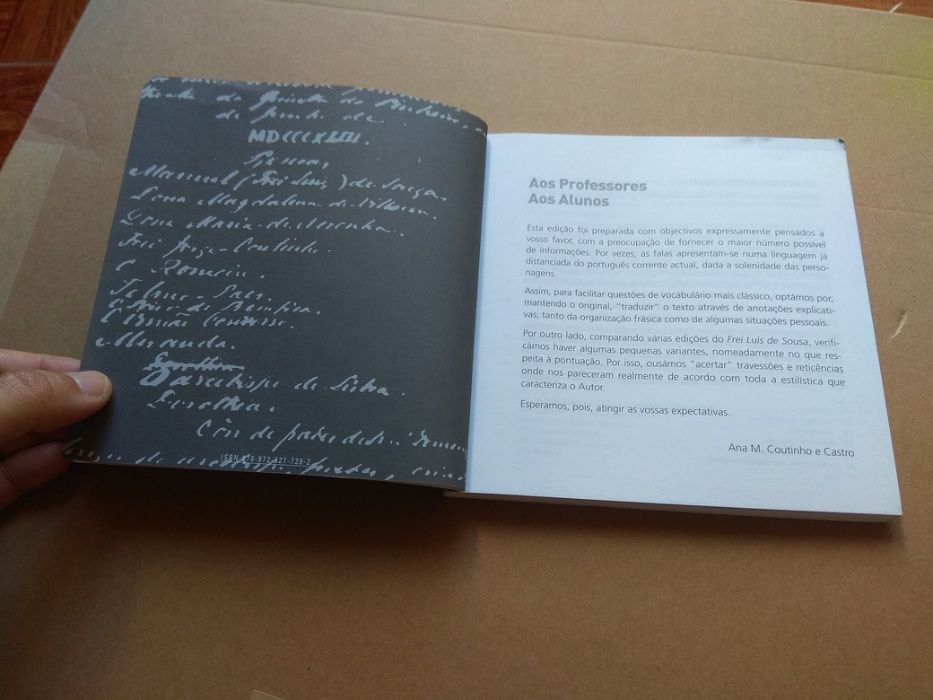 MDCCCXLIII.
Manuel (Frei Luiz) de Souza.
Dona Magdalena de Vilhena.
Dona Maria de Noronha.
Frei Jorge Coutinho
O Romeiro.
Telmo-Paes.
Miranda.
Dorothea.
ISBN 978-972-627-139-2
Aos Professores
Aos Alunos
Esta edição foi preparada com objectivos expressamente pensados a
vosso favor, com a preocupação de fornecer o maior número possível
de informações. Por vezes, as falas apresentam-se numa linguagem já
distanciada do português corrente actual, dada a solenidade das perso-
nagens.
Assim, para facilitar questões de vocabulário mais clássico, optámos por,
mantendo o original, "traduzir" o texto através de anotações explicati-
vas, tanto da organização frásica como de algumas situações pessoais.
Por outro lado, comparando várias edições do Frei Luís de Sousa, verifi-
cámos haver algumas pequenas variantes, nomeadamente no que res-
peita à pontuação. Por isso, ousámos "acertar" travessões e reticências
onde nos pareceram realmente de acordo com toda a estilística que
caracteriza o Autor.
Esperamos, pois, atingir as vossas expectativas.
Ana M. Coutinho e Castro